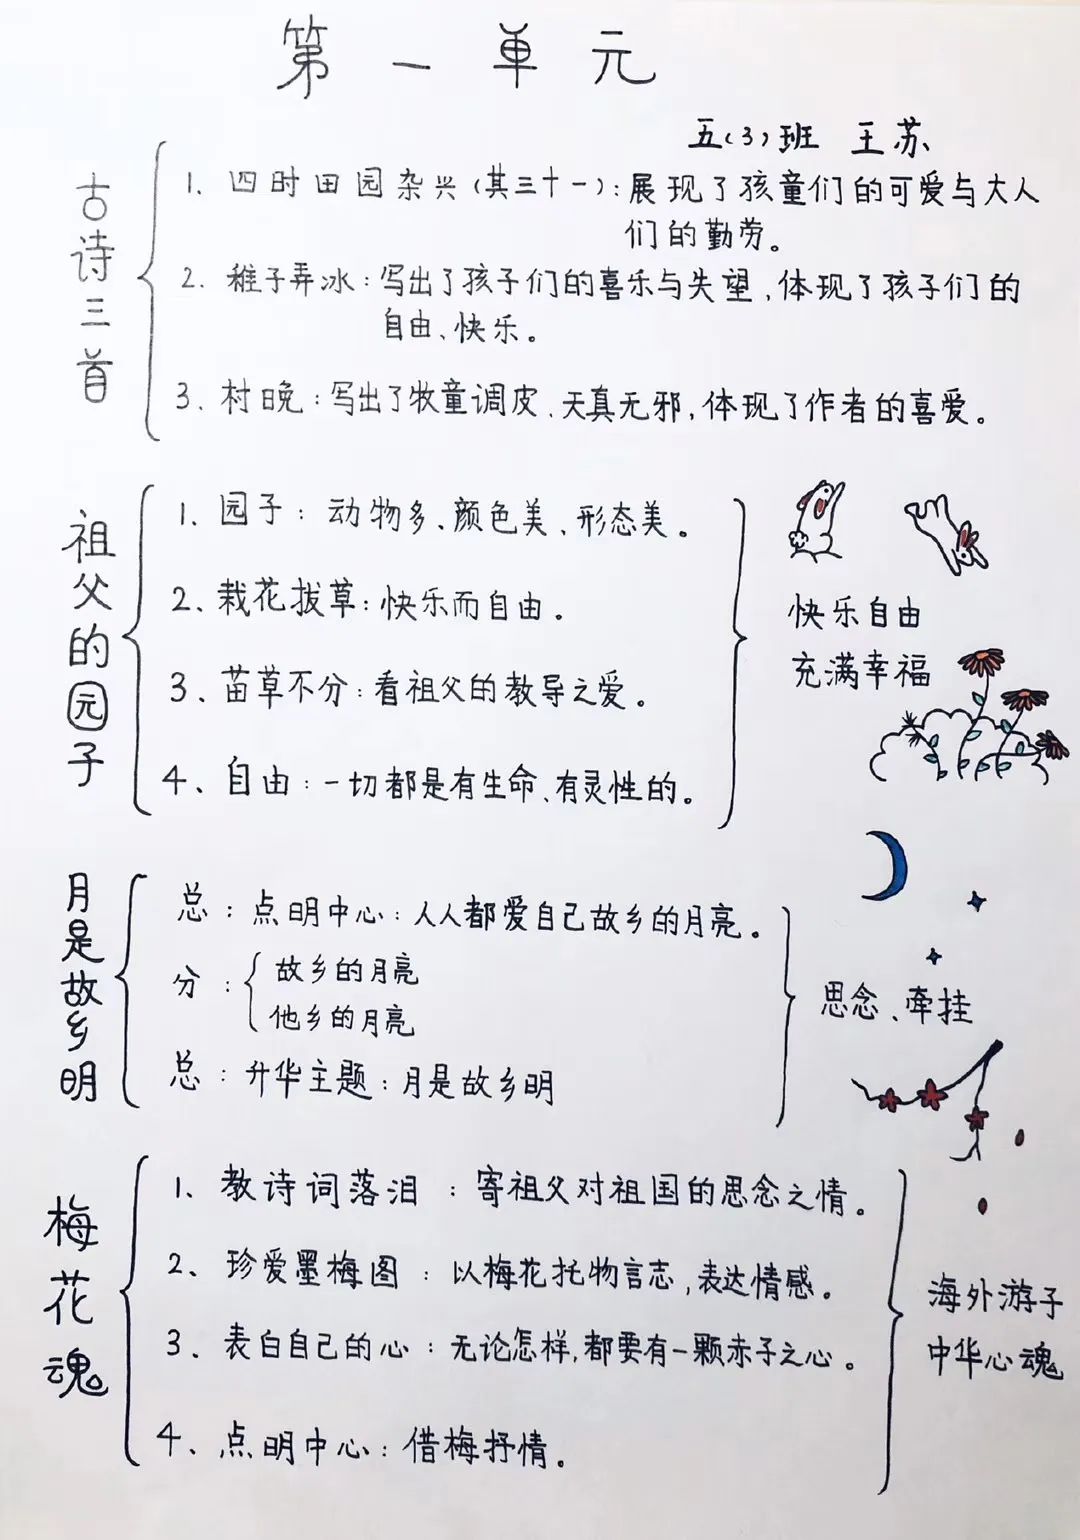 第一单元
五(3)班 王苏
古诗三首
1、四时田园杂兴(其三十一):展现了孩童们的可爱与大人
们的勤劳。
2、稚子弄冰:写出了孩子们的喜乐与失望,体现了孩子们的
自由、快乐。
3、村晚:写出了牧童调皮、天真无邪,体现了作者的喜爱。
祖父的园子
1、园子:动物多、颜色美、形态美。
2、栽花拔草:快乐而自由。
3、苗草不分:看祖父的教导之爱。
4、自由:一切都是有生命、有灵性的。
快乐自由
充满幸福
月是故乡明
总:点明中心:人人都爱自己故乡的月亮。
分:
故乡的月亮
他乡的月亮
总:升华主题:月是故乡明
思念、牵挂
梅花魂
1、教诗词落泪:寄祖父对祖国的思念之情。
2、珍爱墨梅图:以梅花托物言志,表达情感。
3、表白自己的心:无论怎样,都要有一颗赤子之心。
4、点明中心:借梅抒情。
海外游子
中华心魂